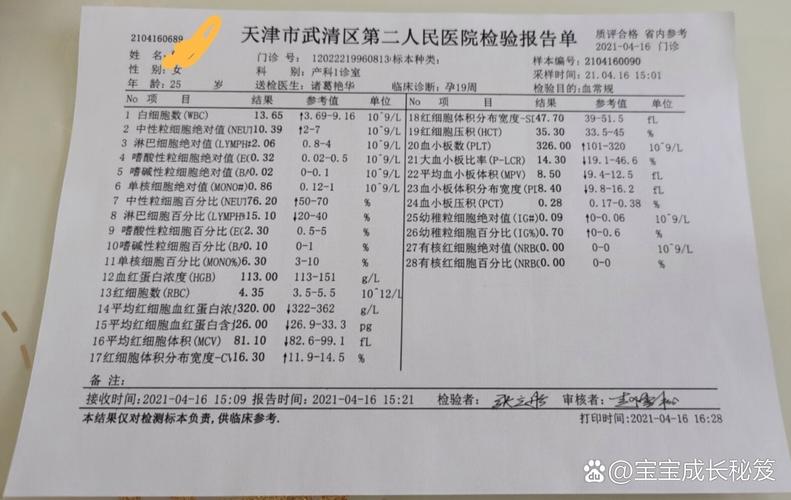 天津市武清区第二人民医院检验报告单
质评合格 省内参考
2104160689
2021-04-16 门诊
姓名:
门诊 号:12022219960813 标本种类:
样本编号:2104160090
性 别:女
科 别:产科1诊室
采样时间:21.04.16 15:01
年 龄:25 岁
送检医生:诸葛艳华
临床诊断:孕19周
检验目的:血常规
No 项 目 结果 参考值 单位
1 白细胞数(WBC) 13.65 ↑3.69-9.16 10^9/L
2 中性粒细胞绝对值(NEUT 10.39 ↑2-7 10^9/L
3 淋巴细胞绝对值(LYMPH# 2.06 0.8-4 10^9/L
4 嗜酸性粒细胞绝对值(E( 0.32 0.02-0.5 10^9/L
5 嗜碱性粒细胞绝对值(BA 0.02 0-0.1 10^9/L
6 单核细胞绝对值(MONO#) 0.86 0.12-1 10^9/L
7 中性粒细胞百分比(NEUT 76.20 ↑50-70 %
8 淋巴细胞百分比(LYMPH% 15.10 ↓20-40 %
9 嗜酸性粒细胞百分比(E( 2.30 0.5-5 %
10嗜碱性粒细胞百分比(BA 0.10 0-1 %
11单核细胞百分比(MONO%) 6.30 3-10 %
12血红蛋白浓度(HGB) 113.00 113-151 g/L
13红细胞数(RBC) 4.35 3.5-5.5 10^12/L
14平均红细胞血红蛋白浓度 320.00 ↓322-362 g/L
15平均红细胞血红蛋白含量 26.00 ↓26.9-33.3 pg
16平均红细胞体积(MCV) 81.10 ↓82.6-99.1 fL
17红细胞体积分布宽度-CV 16.30 ↑11.9-14.5 %
No 项 目 结果 参考值 单位
18红细胞体积分布宽度-SD 47.70 39-51.5 fL
19红细胞压积(HCT) 35.30 33.5-45 %
20血小板数(PLT) 326.00 ↑101-320 10^9/L
21大血小板比率(P-LCR) 14.30 ↓19.1-46.6 %
22平均血小板体积(MPV) 8.50 ↓9.4-12.5 fL
23血小板体积分布宽度(PD 8.40 ↓9.8-16.2 fL
24血小板压积(PCT) 0.28 0.17-0.38 %
25幼稚粒细胞绝对值(IG# 0.09 ↑0-0.06 10^9/L
26幼稚粒细胞百分比(IG% 0.70 ↑0-0.6 %
27有核红细胞绝对值(NRBC 0.00 0-0 10^9/L
28有核红细胞百分比(NRBC 0.00 0-0 %
备 注:
接收时间:2021-04-16 15:09 报告时间:2021-04-16 15:21 检验者: 审核者:
本结果仅对检测标本负责,供临床参考.
打印时间:2021-04-16 16:28
du 宝宝成长秘笈